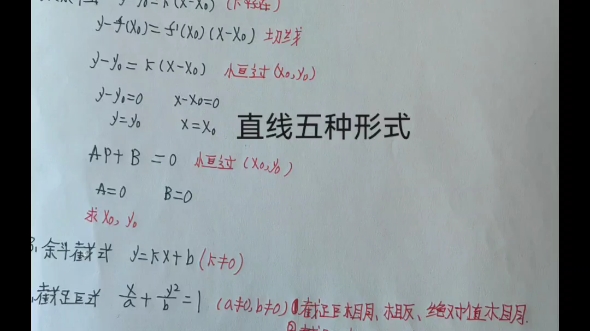 y-y₀=k(x-x₀) (k存在)
y-f(x₀)=f'(x₀)(x-x₀) 切线
y-y₀=k(x-x₀) 恒过(x₀,y₀)
y-y₀=0 x-x₀=0
y=y₀ x=x₀
直线五种形式
AP+B=0 恒过(x₀,y₀)
A=0 B=0
求x₀,y₀
3、余斗截式 y=kx+b(k≠0)
截距式 x/a+y²/b=1 (a≠0,b≠0) ①截距相同、相反、绝对值相同.